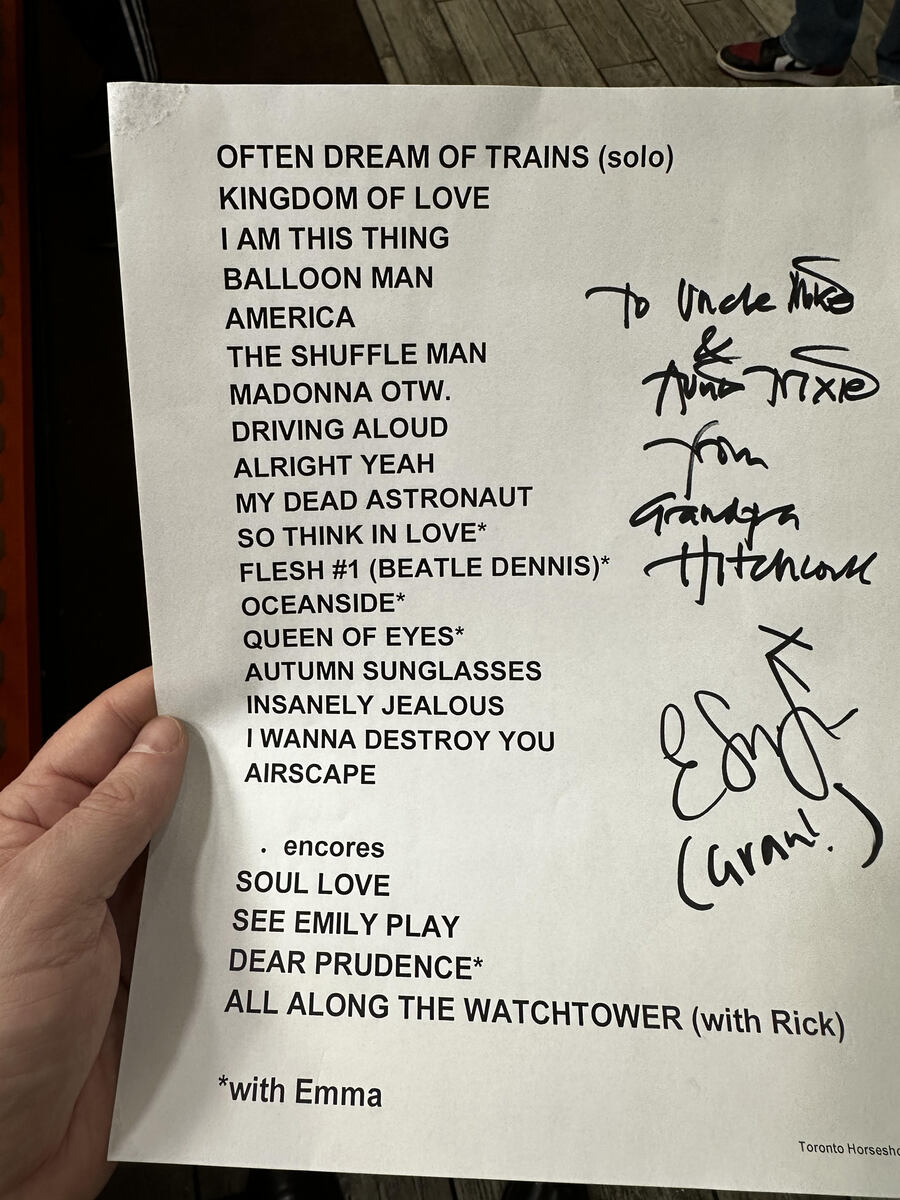 OFTEN DREAM OF TRAINS (solo)
KINGDOM OF LOVE
I AM THIS THING
BALLOON MAN
AMERICA
THE SHUFFLE MAN
MADONNA OTW.
DRIVING ALOUD
ALRIGHT YEAH
MY DEAD ASTRONAUT
SO THINK IN LOVE*
FLESH #1 (BEATLE DENNIS)*
OCEANSIDE*
QUEEN OF EYES*
AUTUMN SUNGLASSES
INSANELY JEALOUS
I WANNA DESTROY YOU
AIRSCAPE
. encores
SOUL LOVE
SEE EMILY PLAY
DEAR PRUDENCE*
ALL ALONG THE WATCHTOWER (with Rick)
*with Emma
To Uncle Mike
&
Trixie
from
Grandpa
Hitchcock
X
(Gran!)
Toronto